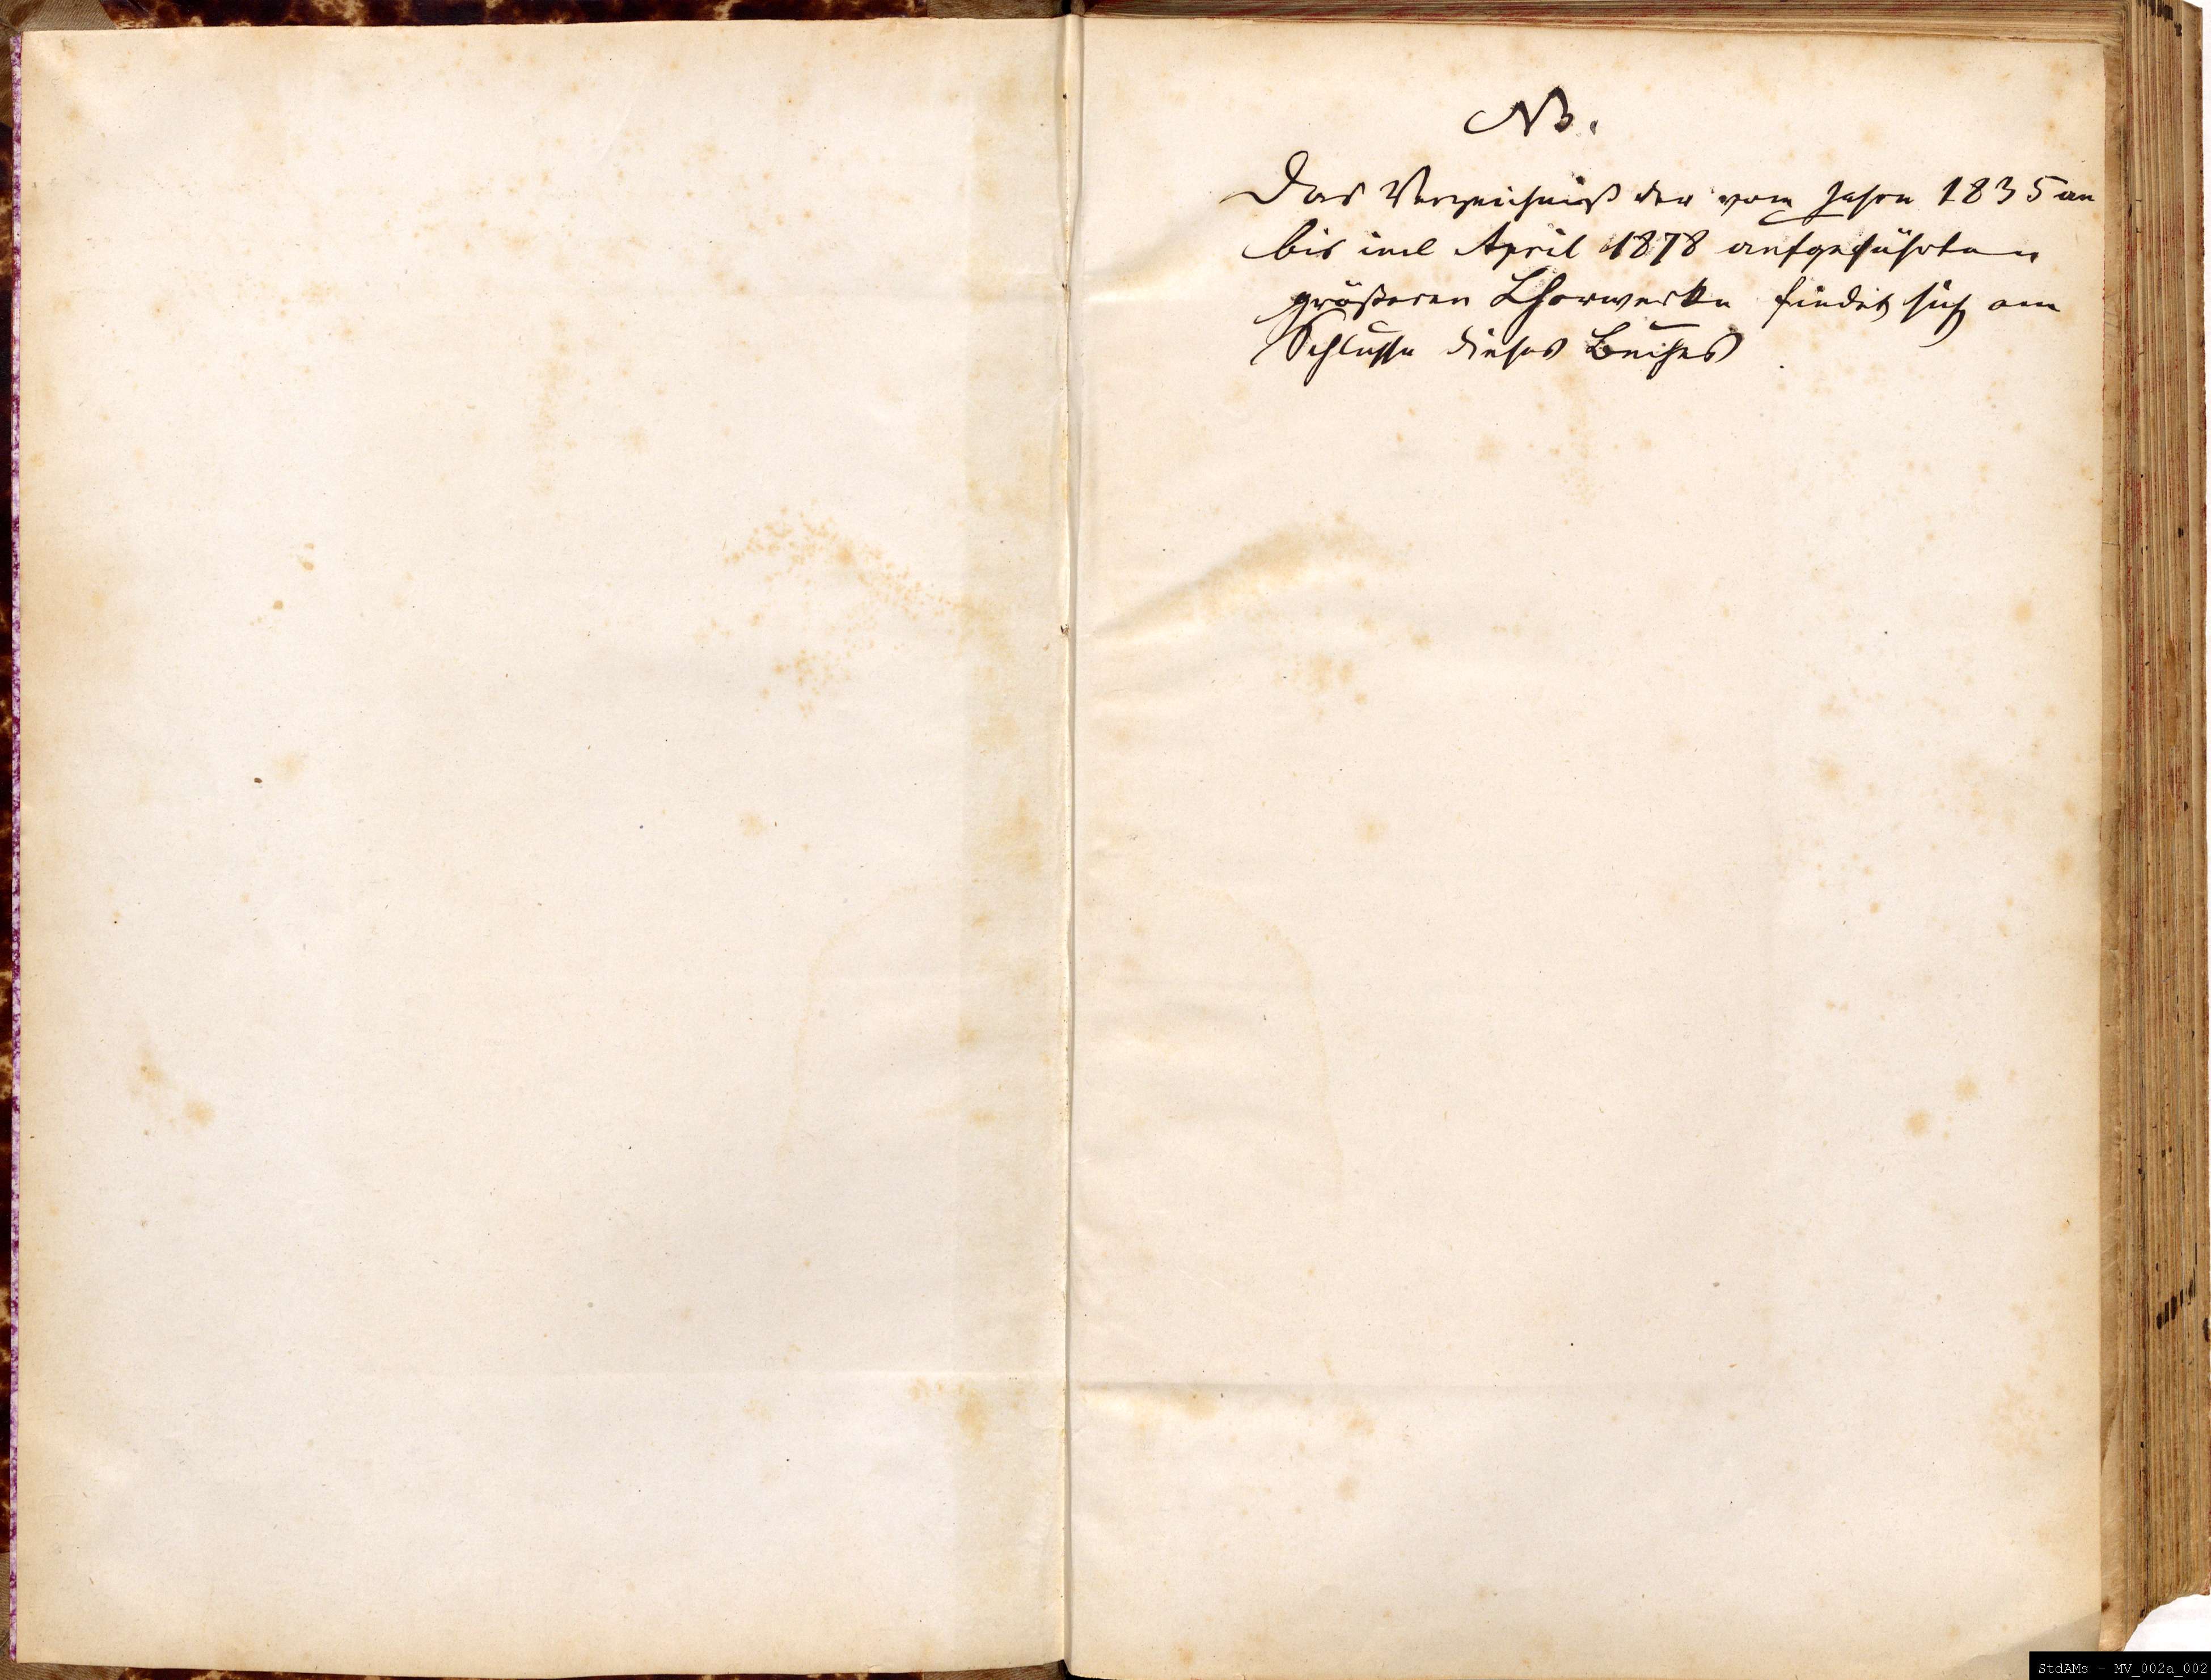 NB.
Das Verzeichniß der vom Jahre 1835 an
bis incl April 1878 aufgeführten
größeren Chorwerke findet sich am
Schlusse dieses Buches.
StdAMs - MV_002a_002